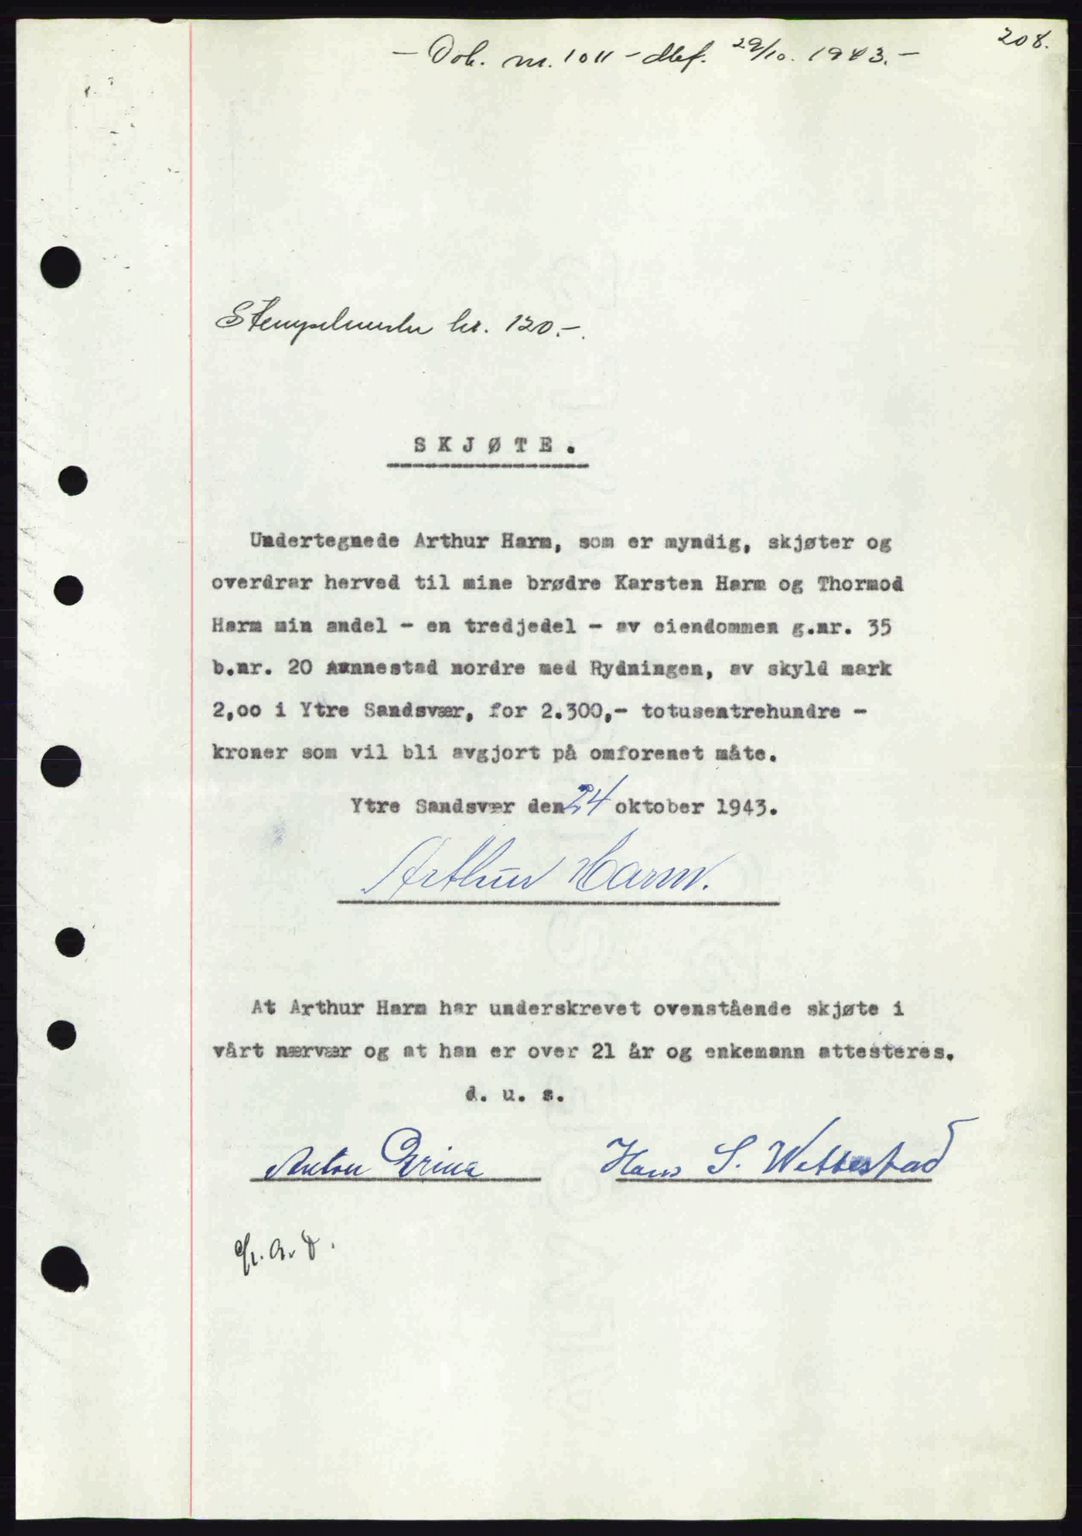 208.
- Dok. nr. 1011 - dbf. 29/10. 1943. -
Stempelmerke kr. 120.-.
SKJØTE.
Undertegnede Arthur Harm, som er myndig, skjøter og
overdrar herved til mine brødre Karsten Harm og Thormod
Harm min andel - en tredjedel - av eiendommen g.nr. 35
b.nr. 20 Aannestad nordre med Rydningen, av skyld mark
2,00 i Ytre Sandsvær, for 2.300,- totusentrehundre -
kroner som vil bli avgjort på omforenet måte.
Ytre Sandsvær den 24 oktober 1943.
Arthur Harm.
At Arthur Harm har underskrevet ovenstående skjøte i
vårt nærvær og at han er over 21 år og enkemann attesteres.
d. u. s.
Anton Hans S. Wettestad